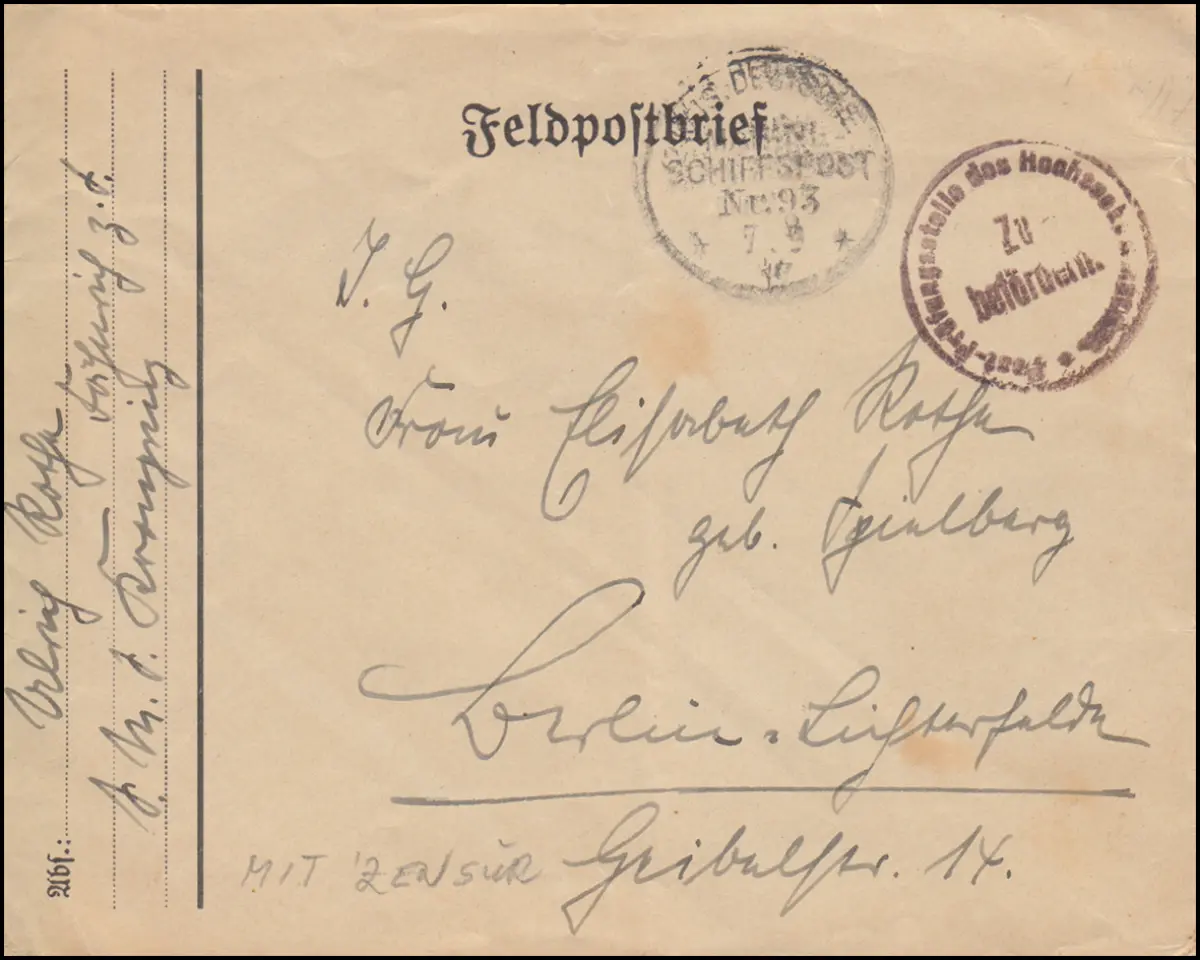 Feldpostbrief
DEUTSCHE
SCHIFFSPOST
Nr. 93
7. 9
Post-Prüfungsstelle des
Zu
befördern.
J. G.
Frau Elisabeth Rothe
geb. Spielberg
Berlin-Lichterfelde
Geibelstr. 14.
MIT ZENSUR
Abs.: Ulrich Rothe
Fähnrich z. S.
S. M. S. Kronprinz